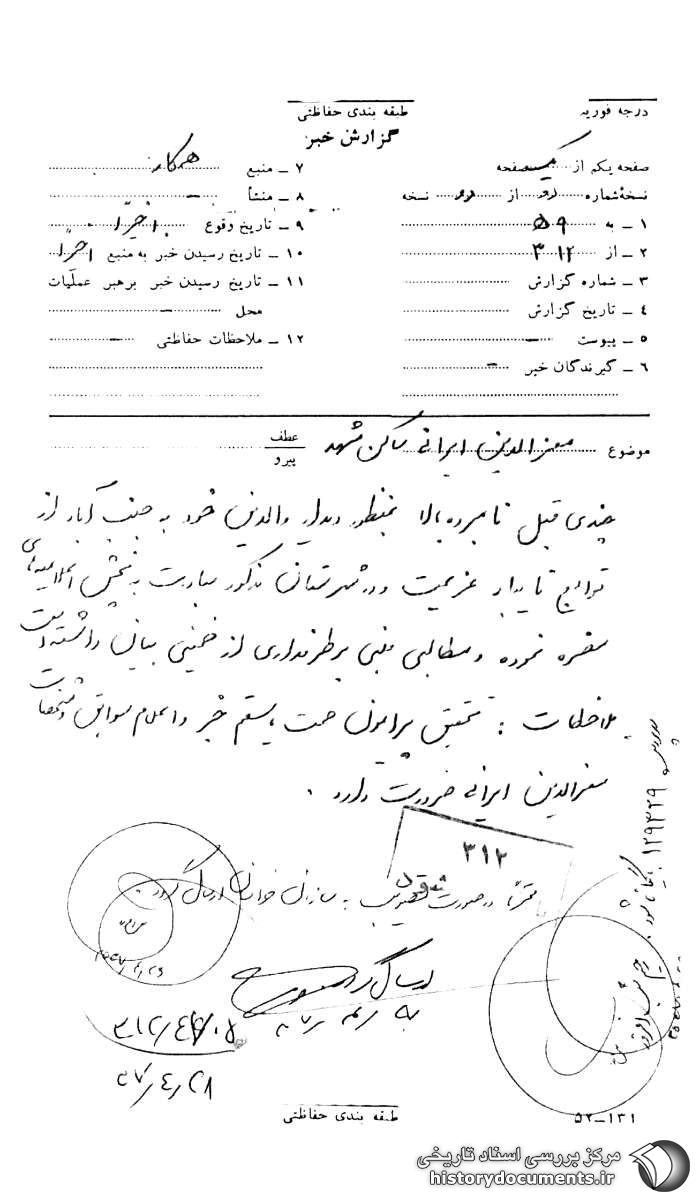 درجه فوریه
طبقه بندی حفاظتی
گزارش خبر
صفحه یکم از یک صفحه
نسخهٔ شماره از نسخه
۱ ـ به ۵۹
۲ ـ از ۳۱۲
۳ ـ شماره گزارش
۴ ـ تاریخ گزارش
۵ ـ پیوست ـ
۶ ـ گیرندگان خبر ـ
۷ ـ منبع همکار
۸ ـ منشأ ـ
۹ ـ تاریخ وقوع اخیراً
۱۰ ـ تاریخ رسیدن خبر به منبع اخیراً
۱۱ ـ تاریخ رسیدن خبر برهبر عملیات
محل ـ
۱۲ ـ ملاحظات حفاظتی ـ
موضوع معزالدین ایرانی ساکن مشهد
عطف
پیرو
چندی قبل نامبرده بالا بمنظور دیدار والدین خود به آباد از
توابع عزیمت و در شهرستان مذکور مبادرت به پخش اعلامیه‌های
مضره نموده و مطالبی مبنی بر طرفداری از خمینی بیان داشته است
ملاحظات : تحقیق پیرامون صحت یا سقم خبر و اعلام سوابق و مشخصات
معزالدین ایرانی ضرورت دارد .
۳۱۲
در صورت تصویب به سازمان خراسان ارسال گردد .
ارسال گردد
۳۱۲
۳۷/۴/۲۸
۱۲۹۳۲۹
بایگانی شود .
طبقه بندی حفاظتی
۵۲ـ۱۳۱
مرکز بررسی اسناد تاریخی
historydocuments.ir